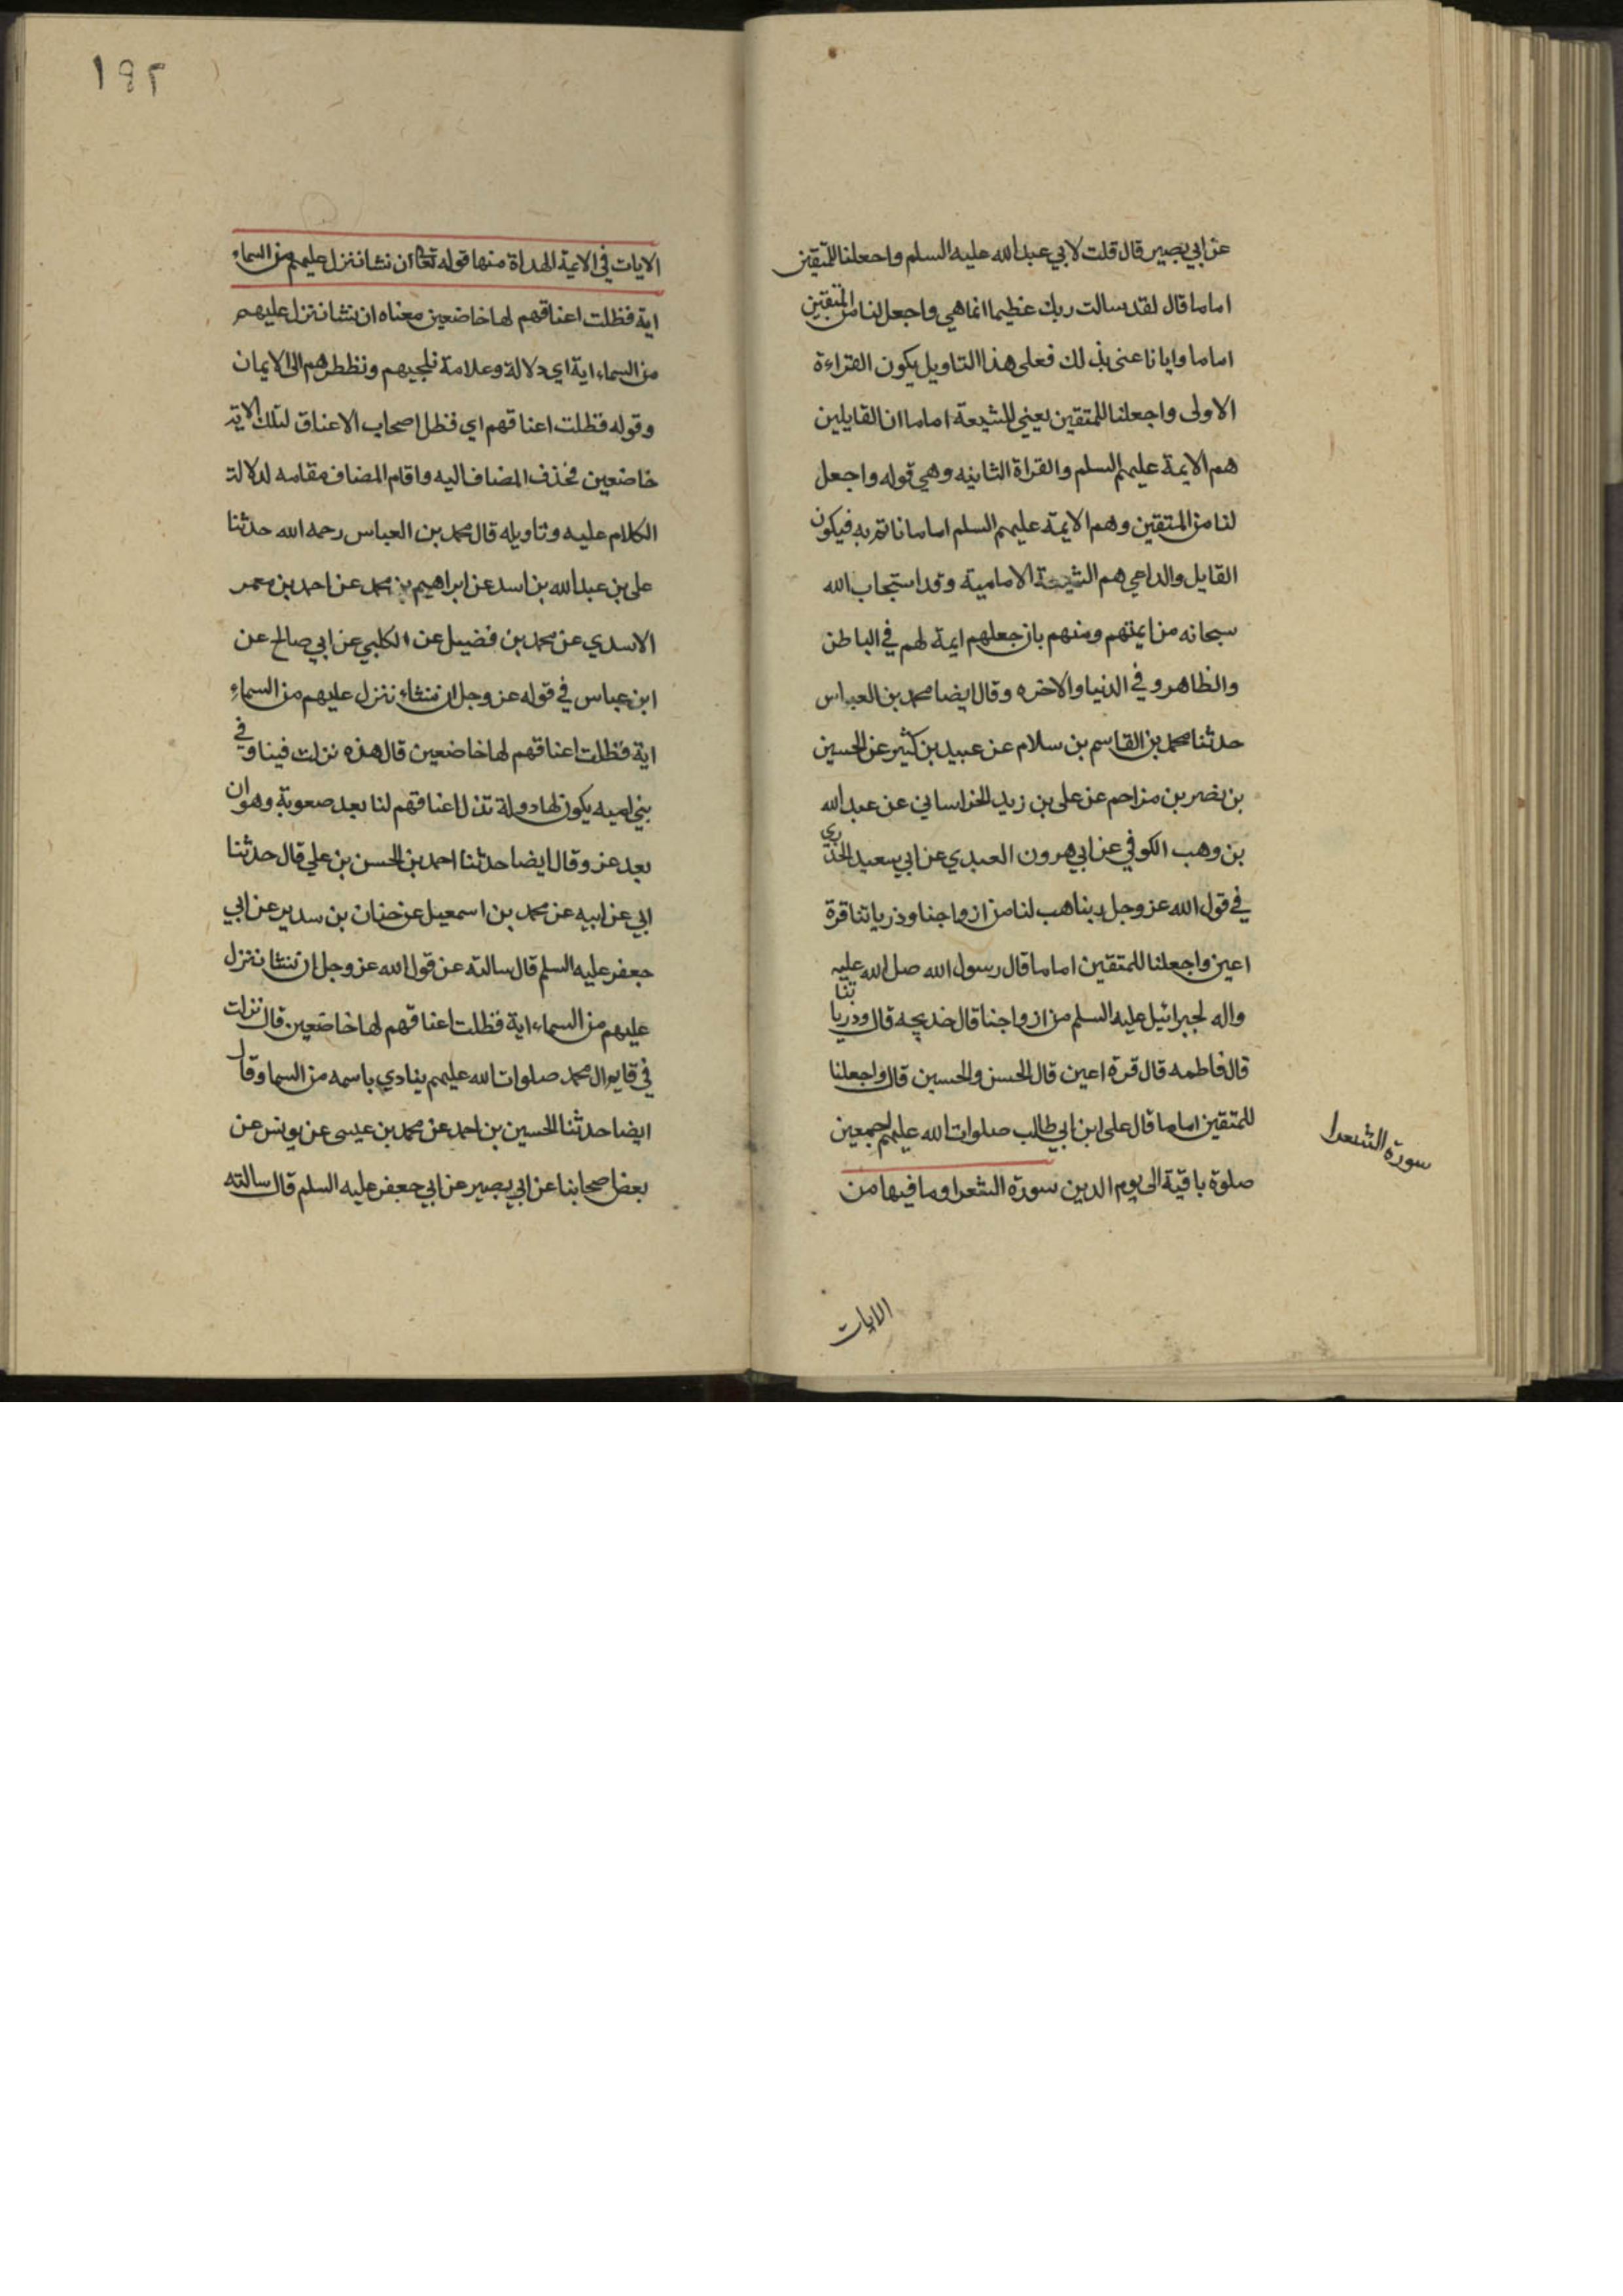 عن ابي بصير قال قلت لابي عبدالله عليه السلم واجعلنا للمتقين
اماما قال لقد سالت ربك عظيما انما هي واجعل لنا من المتقين
اماما وايانا عنى بذلك فعلى هذا التاويل يكون القراءة
الاولى واجعلنا للمتقين يعني للشيعة اماما ان القايلين
هم الايمة عليهم السلم والقراة الثانيه وهي قوله واجعل
لنا من المتقين وهم الايمة عليهم السلم اماما ناتم به فيكون
القايل والداعي هم الشيعة الامامية وقد استجاب الله
سبحانه من ايمتهم ومنهم بان جعلهم ايمة لهم في الباطن
والظاهر وفي الدنيا والاخره وقال ايضا محمد بن العباس
حدثنا محمد بن القاسم بن سلام عن عبيد بن كثير عن الحسين
بن نصر بن مزاحم عن على بن زيد الخراساني عن عبدالله
بن وهب الكوفي عن ابي هرون العبدي عن ابي سعيد الخدري
في قول الله عز وجل ربنا هب لنا من ازواجنا وذرياتنا قرة
اعين واجعلنا للمتقين اماما قال رسول الله صلى الله عليه
واله لجبرائيل عليه السلم من ازواجنا قال خديجه قال وذرياتنا
قال فاطمه قال قرة اعين قال الحسن والحسين قال واجعلنا
للمتقين اماما قال على ابن ابي طالب صلوات الله عليهم اجمعين
صلوة باقية الى يوم الدين سورة الشعرا وما فيها من
سورة الشعرا
الايات
١٩٢
الايات في الايمة الهداة منها قوله تعالى ان نشا ننزل عليهم من السماء
اية فظلت اعناقهم لها خاضعين معناه ان نشا ننزل عليهم
من السماء اية اي دلالة وعلامة تلجيهم ونظطرهم الى الايمان
وقوله فظلت اعناقهم اي فظل اصحاب الاعناق لتلك الاية
خاضعين فحذف المضاف اليه واقام المضاف مقامه لدلالة
الكلام عليه وتاويله قال محمد بن العباس رحمه الله حدثنا
على بن عبدالله بن اسد عن ابراهيم بن محمد عن احمد بن معمر
الاسدي عن محمد بن فضيل عن الكلبي عن ابي صالح عن
ابن عباس في قوله عز وجل ان نشاء ننزل عليهم من السماء
اية فظلت اعناقهم لها خاضعين قال هذه نزلت فينا وفي
بني اميه يكون لها دولة تذل اعناقهم لنا بعد صعوبة وهوان
بعد عز وقال ايضا حدثنا احمد بن الحسن بن علي قال حدثنا
ابي عن ابيه عن محمد بن اسمعيل عن حنان بن سدير عن ابي
جعفر عليه السلم قال سالته عن قول الله عز وجل ان نشا ننزل
عليهم من السماء اية فظلت اعناقهم لها خاضعين قال نزلت
في قايم ال محمد صلوات الله عليهم ينادي باسمه من السما وقال
ايضا حدثنا الحسين بن احمد عن محمد بن عيسى عن يونس عن
بعض اصحابنا عن ابي بصير عن ابي جعفر عليه السلم قال سالته